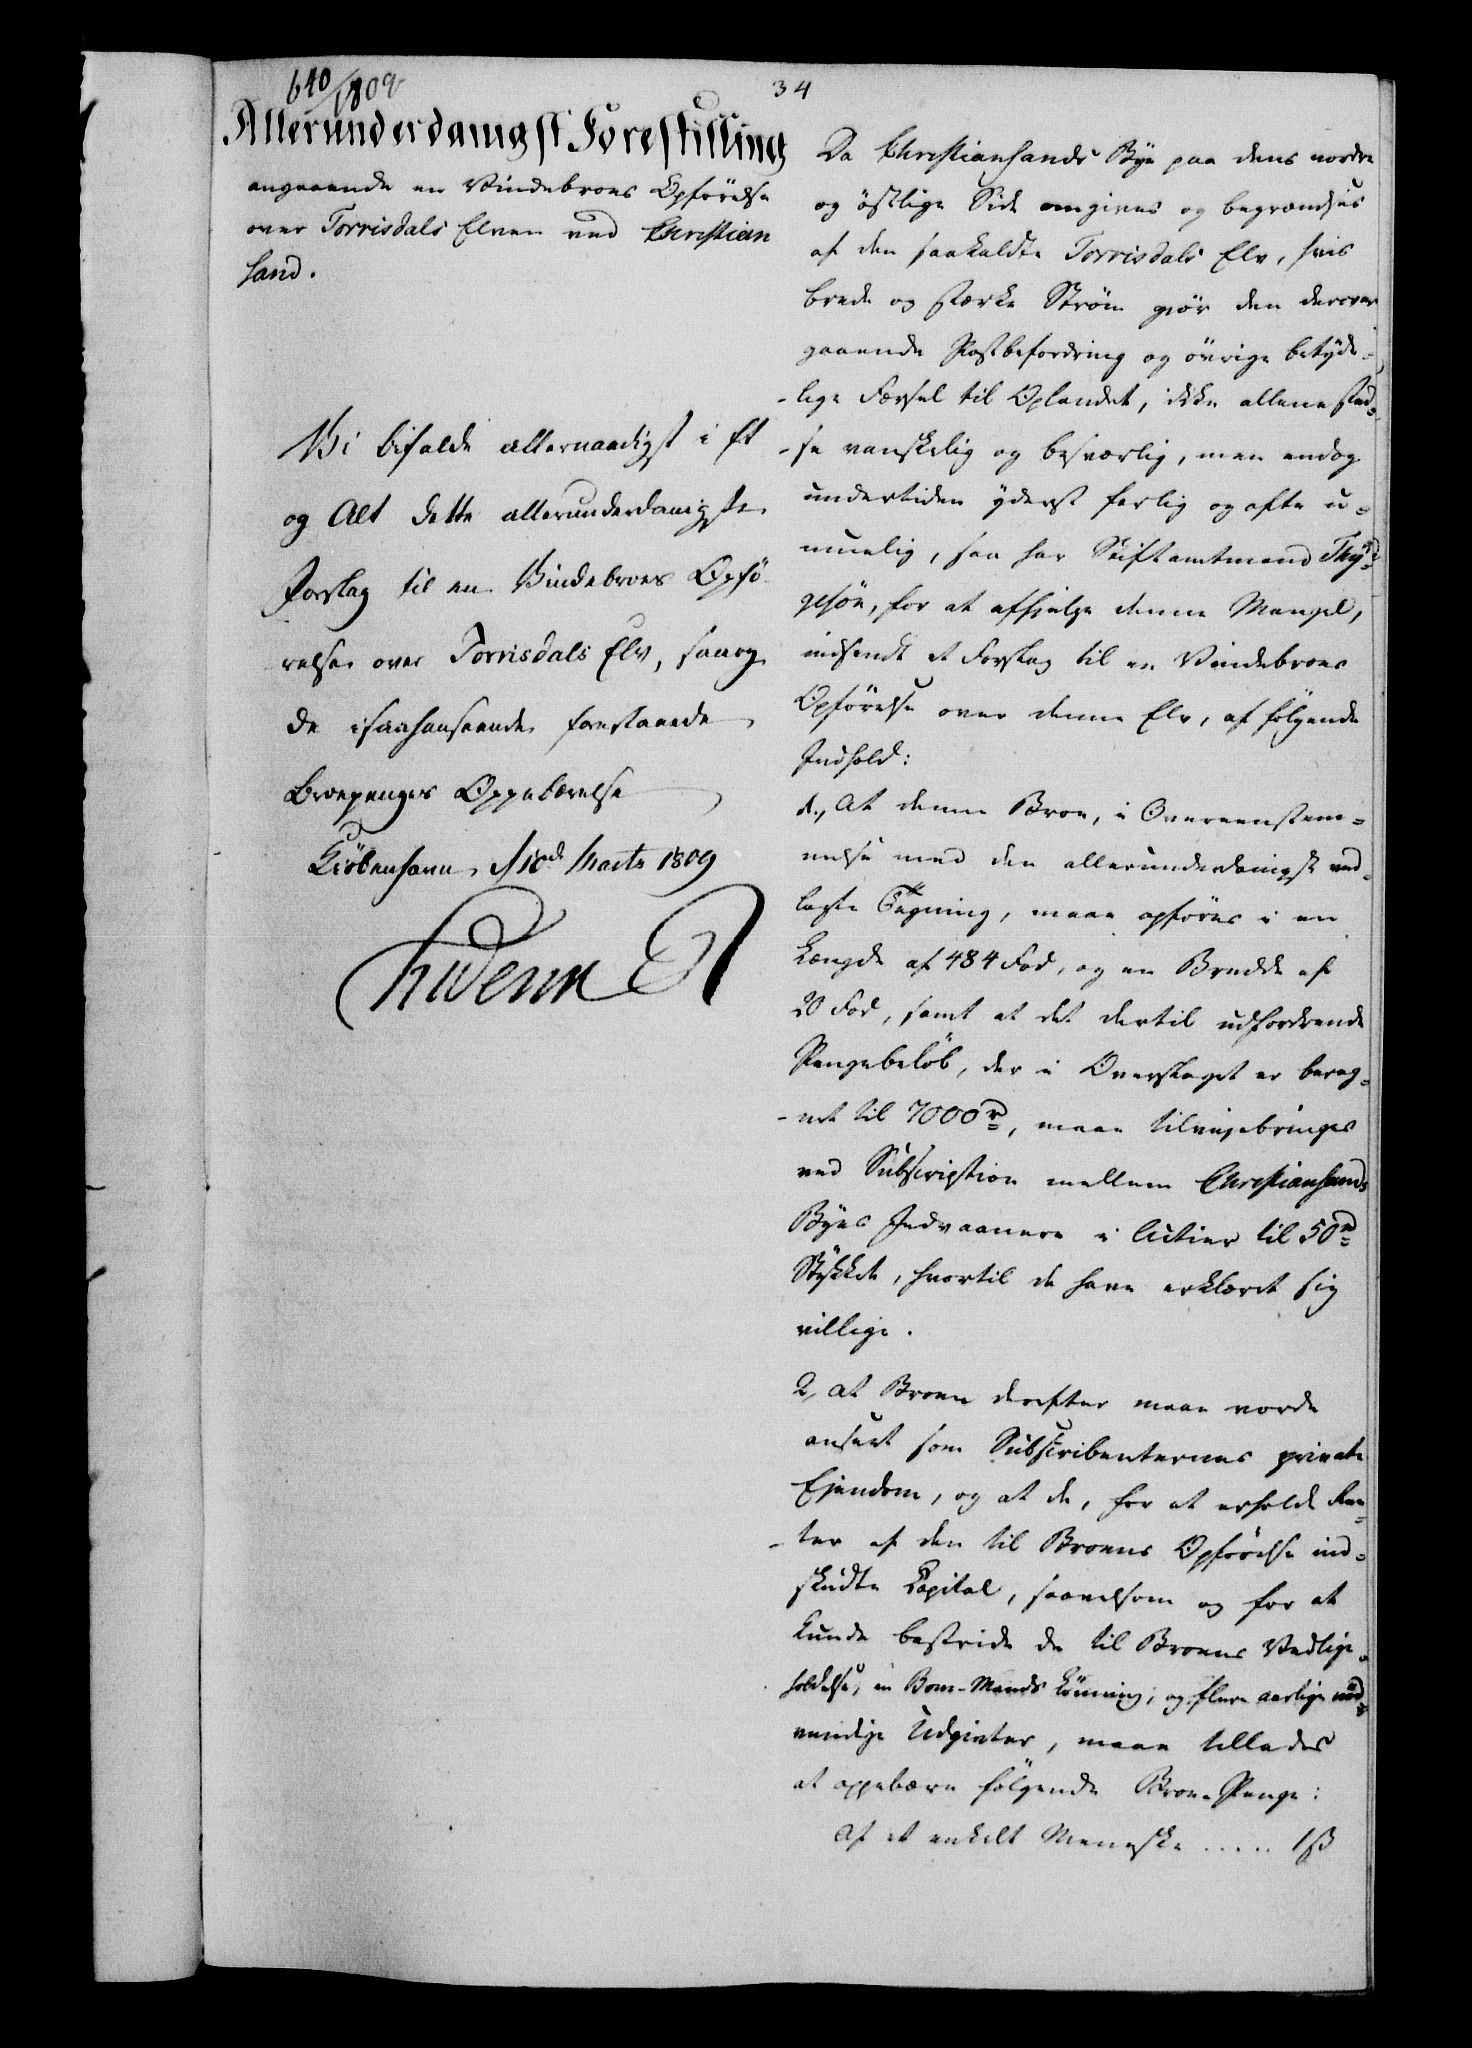 640/1809
34
Allerunderdanigst Forestilling
angaaende en Vindebroes Opförelse
over Torrisdals Elven ved Christian
sand.
Vi bifalde allernaadigst i Et
og Alt dette allerunderdanigste
Forslag til en Vindebroes Opfö
relse over Torrisdals Elv, saa og
de isaahenseende foreslaaede
Broepenges Oppebærelse
Kiöbenhavn, d 10de Marts 1809
Friderik R
Da Christiansands Bye paa dens nordre
og östlige Side omgives og begrændses
af den saakaldte Torrisdals Elv, hvis
brede og stærke Ström giör den derover
gaaende Postbefordring og övrige betyde-
-lige Færsel til Oplandet, ikke allene sted-
-se vanskelig og besværlig, men endog
undertiden yderst farlig og ofte u-
muelig, saa har Stiftamtmand Thy-
gesön, for at afhjelpe denne Mangel,
indsendt et Forslag til en Vindebroes
Opförelse over denne Elv, af fölgende
Indhold:
1., At denne Broe, i Overeenstem-
melse med den allerunderdanigst ved-
lagte Tegning, maae opföres i en
Længde af 484 Fod, og en Bredde af
20 Fod, samt at det dertil udfordrende
Pengebelöb, der i Overslaget er bereg-
-net til 7000 rd, maae tilvejebringes
ved Subscription mellem Christiansands
Byes Indvaanere i Actier til 50 rd
Stykket, hvortil de have erklæret sig
villige.
2, At Broen derefter maae vorde
anseet som Subscribenternes private
Ejendom, og at de, for at erholde Ren-
-ter af den til Broens Opförelse ind-
skudte Capital, saavelsom og for at
kunde bestride de til Broens Vedlige-
holdelse, en Bom-Mands Lönning, og flere aarlige nöd-
vendige Udgivter, maae tillades
at oppebære fölgende Broe-Penge:
Af et enkelt Menneske ..... 1 ß